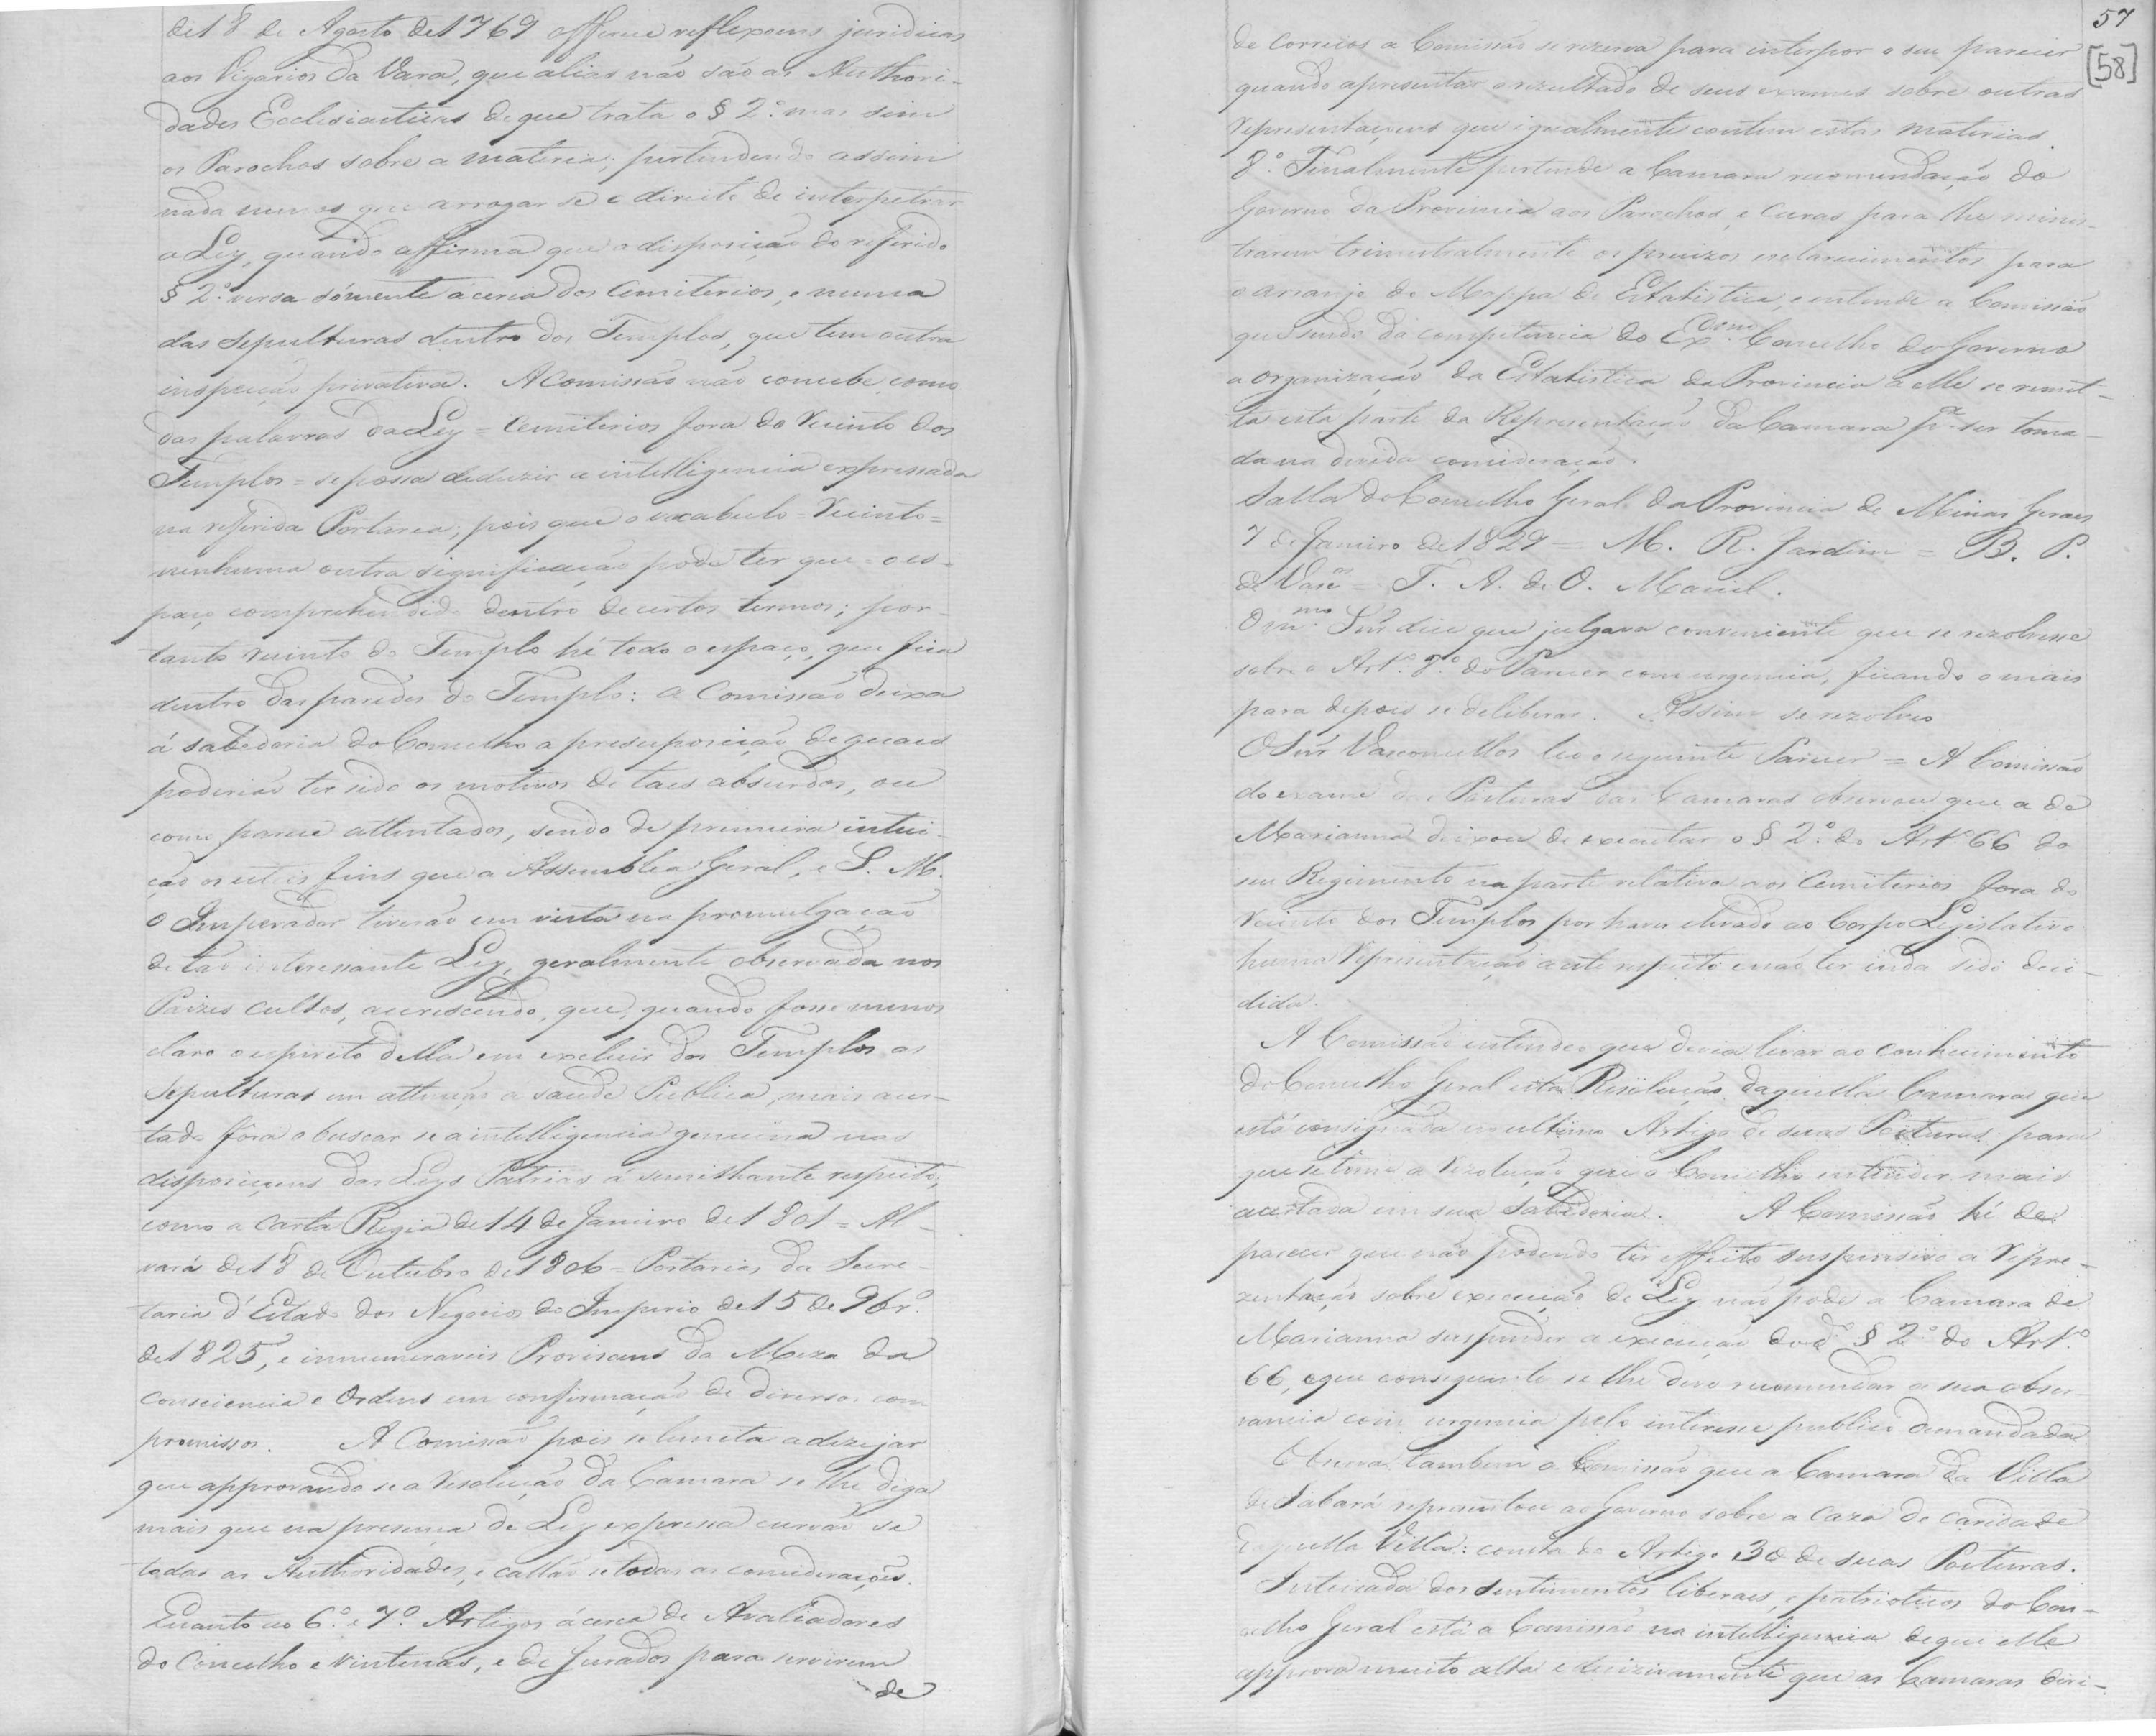 de 18 de Agosto de 1769 offerece reflexoens juridicas
aos Vigarios da Vara, que alias não são as Authori-
dades Ecclesiasticas de que trata o § 2º mas sim
os Parochos sobre a materia; pertendendo assim
nada menos que arrogar se o direito de interpetrar
a Ley, quando affirma que a disposição do referido
§ 2º versa sómente ácerca dos Cemiterios, e nunca
das Sepulturas dentro dos Templos, que tem outra
inspecção privativa. A Comissão não concebe como
das palavras da Ley = Cemiterios fora do recinto dos
Templos = se possa deduzir a intelligencia expressada
na referida Portaria; pois que o vocabulo = Recinto =
nenhuma outra significação pode ter que = o es-
paço comprehendido dentro de certos termos; por-
tanto recinto do Templo hé todo o espaço, que fica
dentro das paredes do Templo: a Comissão deixa
á sabedoria do Concelho a presuposição de quaes
poderião ter sido os motivos de taes absurdos, ou
como parece attentados, sendo de primeira intui-
ção os uteis fins que a Assemblea Geral, e S. M.
o Imperador tiverão em vista na promulgação
de tão interessante Ley, geralmente observada nos
Paizes cultos, acrescendo, que, quando fosse menos
claro o espirito della em excluir dos Templos as
Sepulturas em attenção á saude Publica, mais acer-
tado fôra o buscar se a intelligencia genuina nas
disposiçoens das Leys Patrias á semilhante respeito,
como a Carta Regia de 14 de Janeiro de 1801 = Al-
vará de 18 de Outubro de 1806 = Portarias da Secre-
taria d'Estado dos Negocios do Imperio de 15 de 9br.º
de 1825, e innumeraveis Provisoens da Meza da
Consciencia e Ordens em confirmação de diversos com
promissos. A Comissão pois se limita a dezejar
que approvando se a Resolução da Camara se lhe diga
mais que na presença de Ley expressa curvão se
todas as Authoridades, e callão se todas as consideraçoes.
Quanto ao 6º e 7º Artigos ácerca de Avaliadores
do Concelho e Vintenas, e de Jurados para servirem
de
57
[58]
de correios a Comissão se rezerva para interpor o seu parecer
quando apresentar o rezultado de seus exames sobre outras
representaçoens que igualmente contem estas materias.
8º Finalmente pertende a Camara recomendação do
Governo da Provincia aos Parochos, e Curas para lhe minis-
trarem trimestralmente os precizos esclarecimentos para
o arranjo do Mappa de Estatistica, e entende a Comissão
que sendo da competencia do Exmº Concelho do Governo
a organização da Estatistica da Provincia a elle se remet-
ta esta parte da Representação da Camara pª ser toma-
da na devida consideração.
Salla do Concelho Geral da Provincia de Minas Geraes
7 de Janeiro de 1829 = M. R. Jardim = B. P.
de Vascos = T. A. de O. Maciel.
O mmo Sñr dice que julgava conveniente que se rezolvesse
sobre o Art.º 8º do Parecer com urgencia, ficando o mais
para depois se deliberar. Assim se rezolveo
O Sñr Vasconcellos leo o seguinte Parecer = A Comissão
do exame das Posturas das Camaras observou que a de
Marianna deixou de executar o § 2º do Art.º 66 do
seu Regimento na parte relativa aos Cemiterios fora do
recinto dos Templos por haver elevado ao Corpo Legislativo
huma Representação a este respeito e não ter inda sido deci-
dida.
A Comissão entendeo que devia levar ao conhecimento
do Concelho Geral esta Resolução daquella Camara que
está consignada no ultimo Artigo de suas Posturas para
que se tome a rezolução que o Concelho entender mais
acertada em sua sabedoria. A Comissão hé de
parecer que não podendo ter effeito suspensivo a repre-
zentação sobre execução de Ley não pode a Camara de
Marianna suspender a execução do dº § 2º do Art.º
66, e que conseguinte se lhe deve recomendar a sua obser-
vancia com urgencia pelo interesse publico demandada
Observa tambem a Comissão que a Camara da Villa
de Sabará representou ao Governo sobre a caza de caridade
daquella Villa: consta do Artigo 30 de suas Posturas.
Inteirada dos sentimentos liberaes, e patrioticos do Con-
celho Geral está a Comissão na intelligencia de que elle
approva muito alta e decizivamente que as Camaras diri-